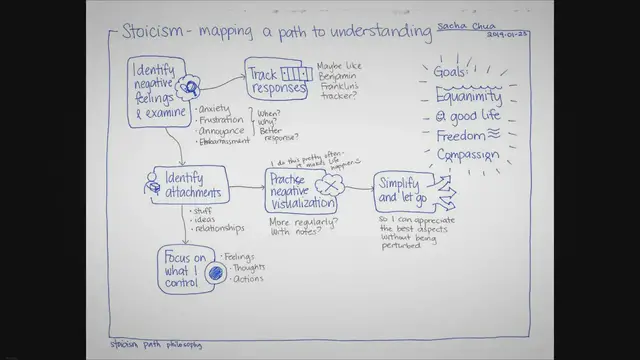 Stoicism - mapping a path to understanding
Sacha Chua
2019-01-23
Identify
negative
feelings
& examine
Track
responses
Maybe like
Benjamin
Franklin's
tracker?
• anxiety
• Frustration
• Annoyance
• Embarrassment
When?
Why?
Better
response?
Goals:
Equanimity
a good life
Freedom
Compassion
Identify
attachments
• stuff
• ideas
• relationships
I do this pretty often -
it makes life
happier
Practise
negative
visualization
More regularly?
With notes?
Simplify
and let go
so I can appreciate
the best aspects
without being
perturbed
Focus on
what I
control
• Feelings
• Thoughts
• Actions
stoicism path philosophy